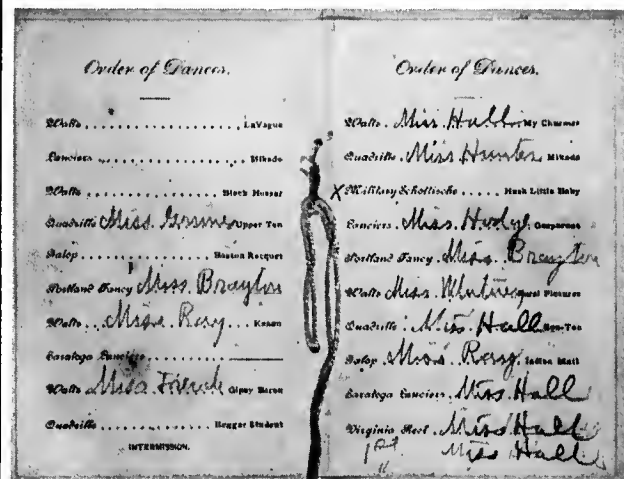 Order of Dances.
Waltz . . . . . . . . . . . . . . . . . LaVague
Lanciers . . . . . . . . . . . . . . . . Mikado
Waltz . . . . . . . . . . . . . . . Black Hussar
Quadrille Miss. Upper Ten
Galop . . . . . . . . . . . . . Boston Racquet
Portland Fancy Miss. Brayton
Waltz . . . Miss. Ray . . .
Saratoga Lanciers
Waltz Miss French Gipsy Baron
Quadrille . . . . . . . . . . . . Beggar Student
INTERMISSION.
Order of Dances.
Waltz . Miss. Hall My Charmer
Quadrille . Miss. Hunter Mikado
X Military Schottische . . . . . Hush Little Baby
Lanciers . Miss.
Portland Fancy . Miss. Brayton
Waltz Miss. Pictures
Quadrille . Miss. Hall Bon-Ton
Galop . Miss. Ray. Indian Mail
Saratoga Lanciers . Miss. Hall
Virginia Reel . Miss Hall
Miss Hall